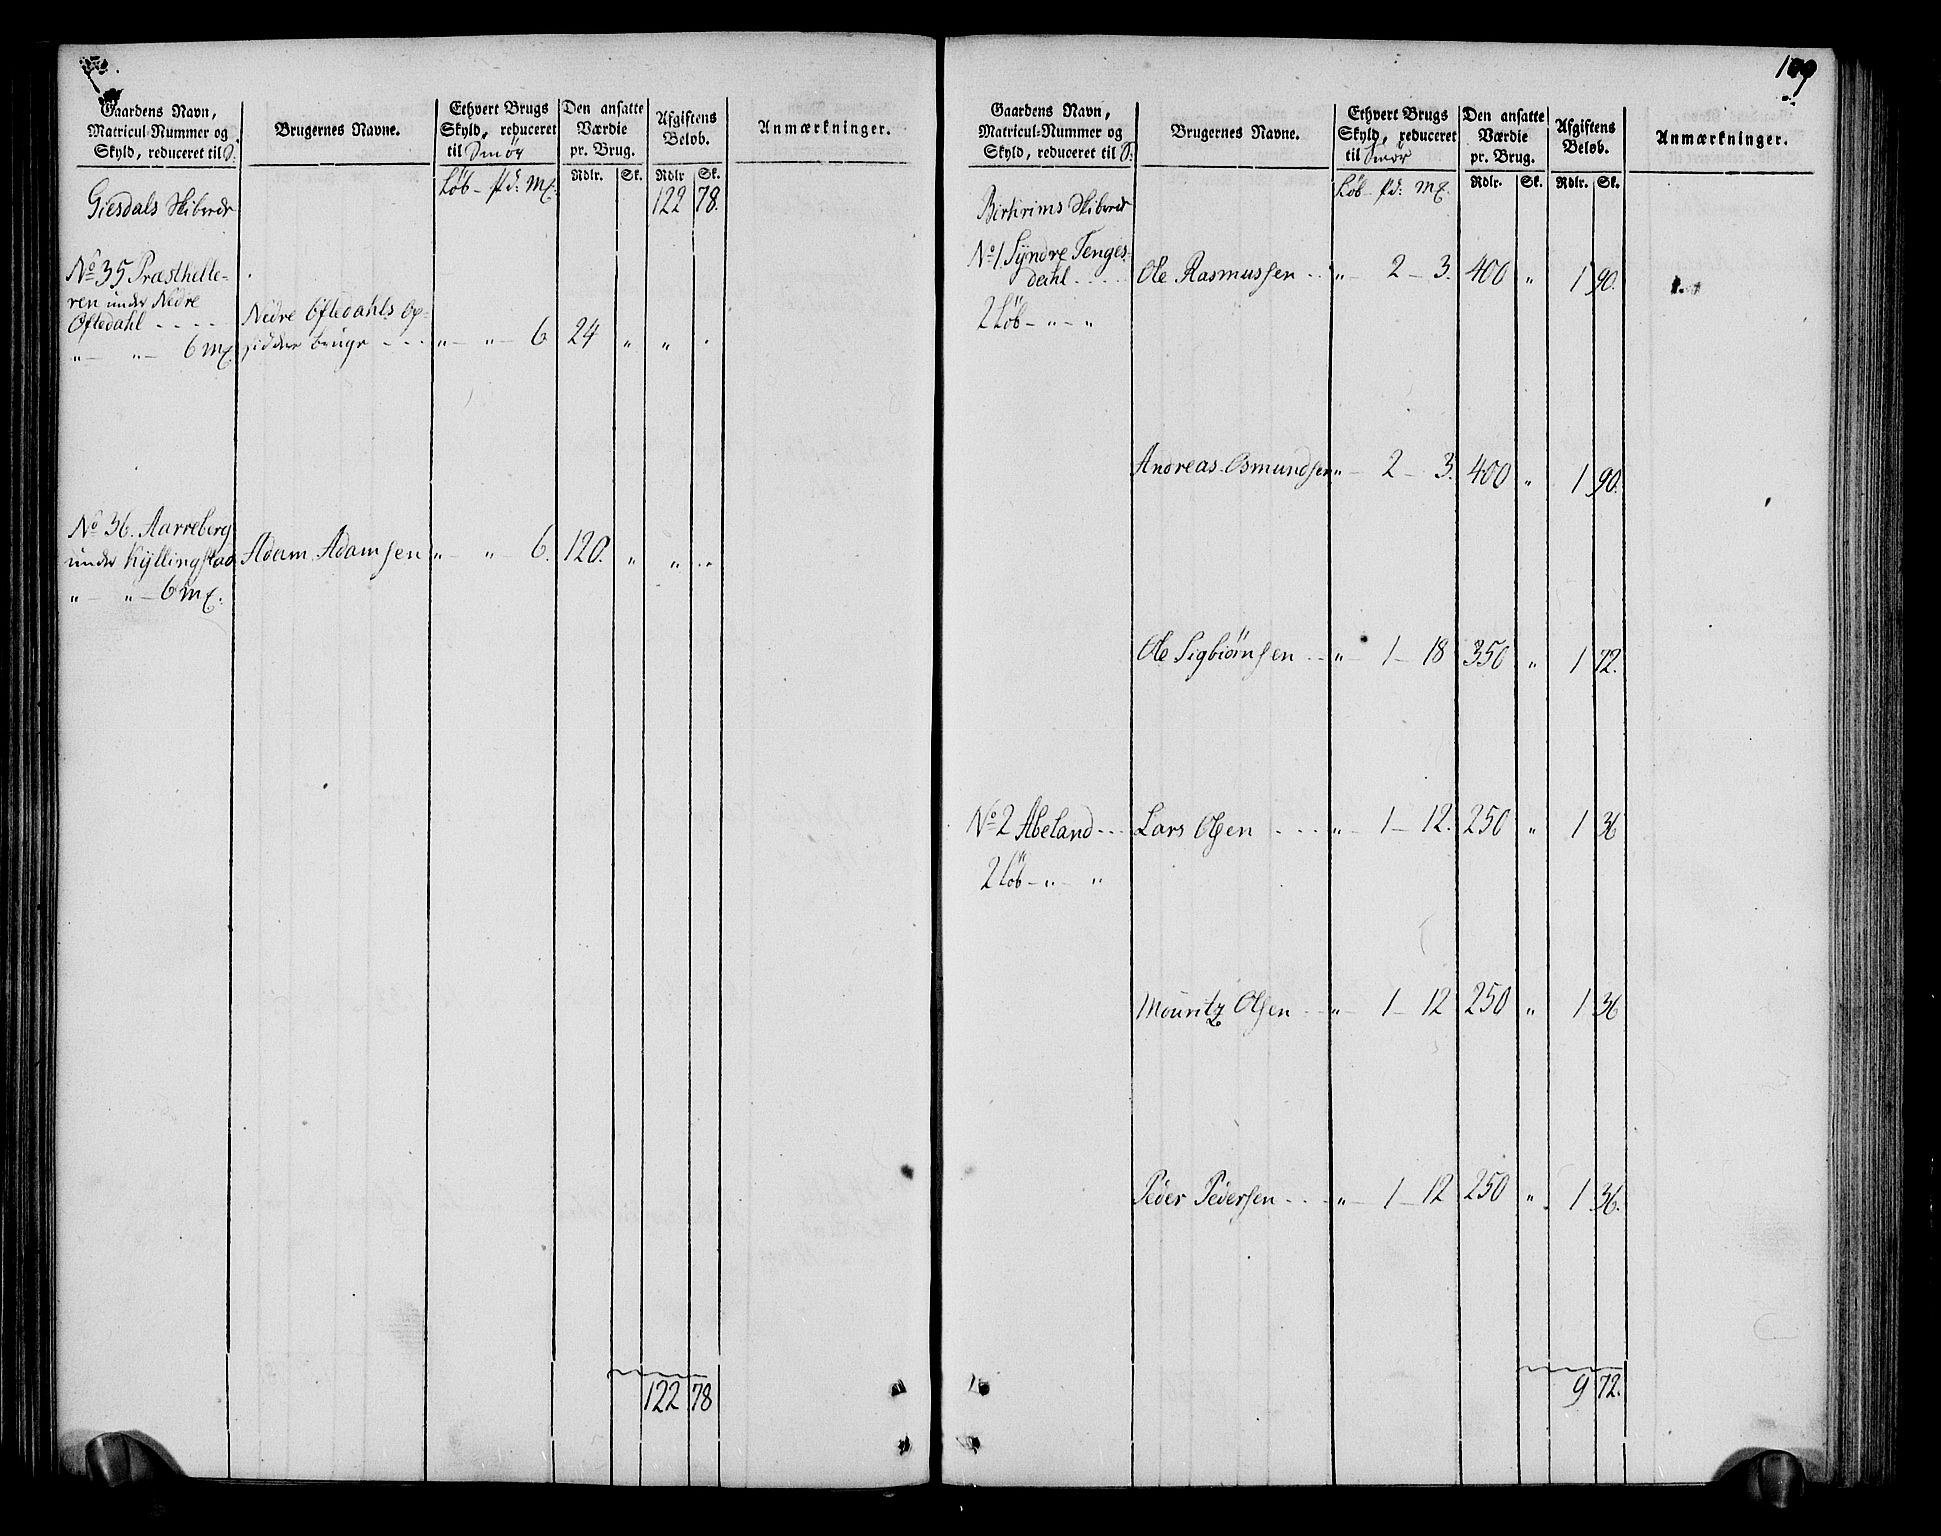 Gaardens Navn, Matricul-Nummer og Skyld, reduceret til S:
Brugernes Navne.
Ethvert Brugs Skyld, reduceret til Smör
Den ansatte Værdie pr. Brug.
Afgiftens Beløb.
Anmærkninger.
Rdlr. Sk. Rdlr Sk.
Löb - pd: mk:
Giesdals Skibrede 122 78.
No 35 Præsthelle-
ren under Nedre
Oftedahl - - - - Nedre Oftedahls Op-
„ - „ - 6 mk. sidder bruge - - - „ - „ - 6 24 „ „ .
No 36. Aarreberg
under Kÿllingstad Adam Adamsen „ - „ - 6. 120. „ „ ..
„ - „ - 6 mk.
122 78
109
Gaardens Navn, Matricul-Nummer og Skyld, reduceret til S:
Brugernes Navne.
Ethvert Brugs Skyld, reduceret til Smör
Den ansatte Værdie pr. Brug.
Afgiftens Beløb.
Anmærkninger.
Rdlr. Sk. Rdlr. Sk.
Löb - pd: mk.
Birkrims Skibrede
No 1. Sÿndre Tenges-
dahl . . . . Ole Rasmussen - - „ - 2 - 3. 400 „ 1 90.
2 Löb - „ - „
Andreas Osmundsen „ - 2 - 3. 400 „ 1 90.
Ole Sigbiörnsen - - „ - 1 - 18 350 „ 1 72.
No 2 Abeland - - - Lars Olsen - - - „ - 1 - 12. 250 „ 1 36
2 Löb - „ - „
Mouritz Olsen - - „ - 1 - 12 250 „ 1 36
Peder Pedersen - - - „ - 1 - 12 250 „ 1 36.
9 72.